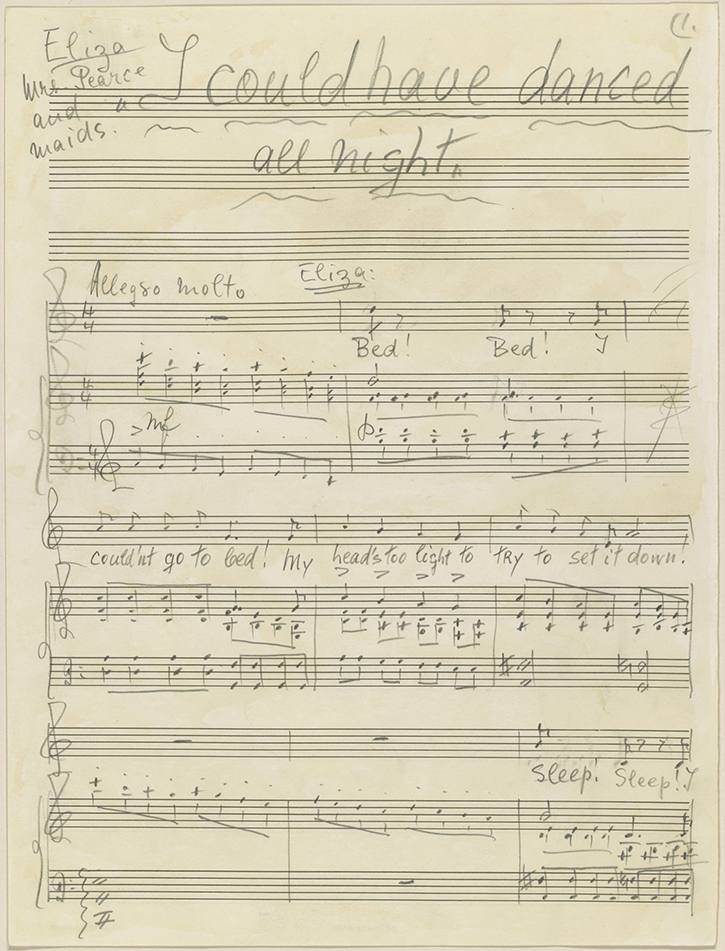 (1.
Eliza
Mrs. Pearce
and
maids.
"I could have danced
all night."
Allegro molto
Eliza:
Bed! Bed! I
mf
couldn't go to bed! My head's too light to try to set it down!
Sleep! Sleep! I